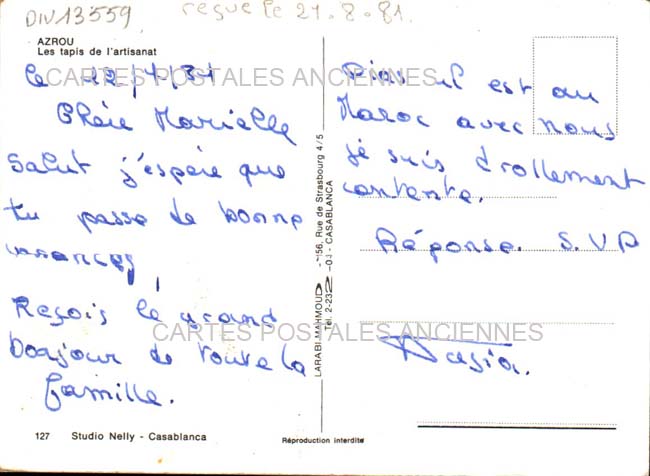 DIV13559
reçue le 21.8.81
AZROU
Les tapis de l'artisanat
CARTES POSTALES ANCIENNES
le 12/7/81
Chère Marielle
Salut j'espère que
tu passe de bonne
vacances
Reçois le grand
bonjour de toute la
famille.
LARABI MAHMOUD - 156, Rue de Strasbourg 4/5
Tél. - CASABLANCA
il est au
Maroc avec nous
je suis drollement
contente.
Réponse. S.V.P
CARTES POSTALES ANCIENNES
Nasia.
127 Studio Nelly - Casablanca
Réproduction interdite